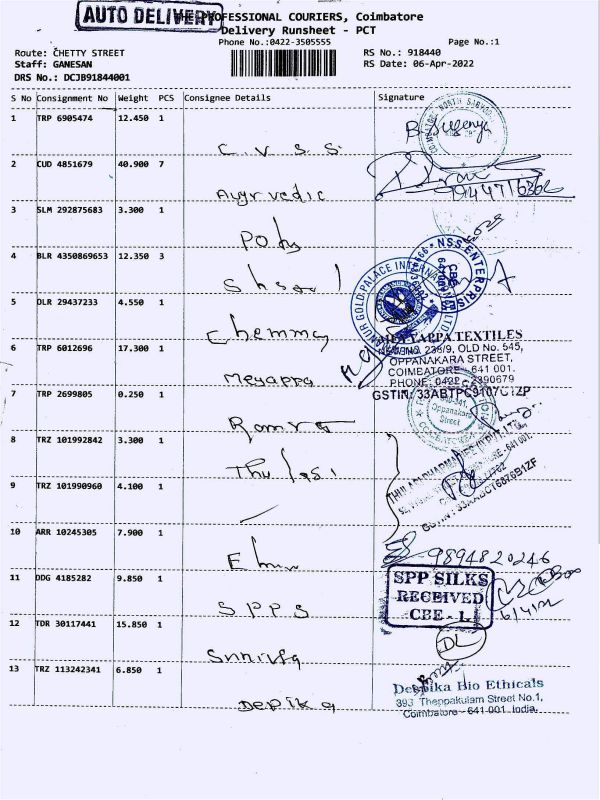 AUTO DELIVERY
THE PROFESSIONAL COURIERS, Coimbatore
Delivery Runsheet - PCT
Phone No.:0422-3505555
Page No.:1
Route: CHETTY STREET
RS No.: 918440
Staff: GANESAN
RS Date: 06-Apr-2022
DRS No.: DCJB91844001
S No Consignment No Weight PCS Consignee Details Signature
1 TRP 6905474 12.450 1
C.V.S.S.
2 CUD 4851679 40.900 7
Ayurvedic
9447716362
3 SLM 292875683 3.300 1
4 BLR 4350869653 12.350 3
NSS ENTERPRISES
CBE
5 DLR 29437233 4.550 1
Chemmy
6 TRP 6012696 17.300 1
Meyappa
MEYYAPPA TEXTILES
NEW NO. 238/9, OLD No. 545,
OPPANAKARA STREET,
COIMBATORE - 641 001.
PHONE: 0422 - 2390679
GSTIN: 33ABTPC9107C1ZP
7 TRP 2699805 0.250 1
Oppanakara
Street
8 TRZ 101992842 3.300 1
Thulasi
9 TRZ 101990960 4.100 1
10 ARR 10245305 7.900 1
9894820246
11 DDG 4185282 9.850 1
SPPS
SPP SILKS
RECEIVED
CBE - 1.
6/4/22
12 TDR 30117441 15.850 1
DL
13 TRZ 113242341 6.850 1
Depika
Deepika Bio Ethicals
393 Theppakulam Street No.1,
Coimbatore - 641 001. India.